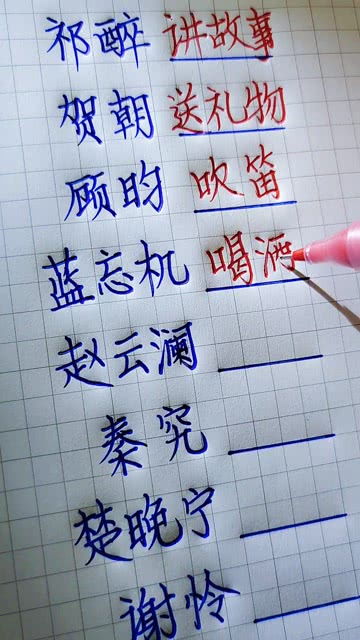 祁醉 讲故事
贺朝 送礼物
顾昀 吹笛
蓝忘机 喝酒
赵云澜
秦究
楚晚宁
谢怜